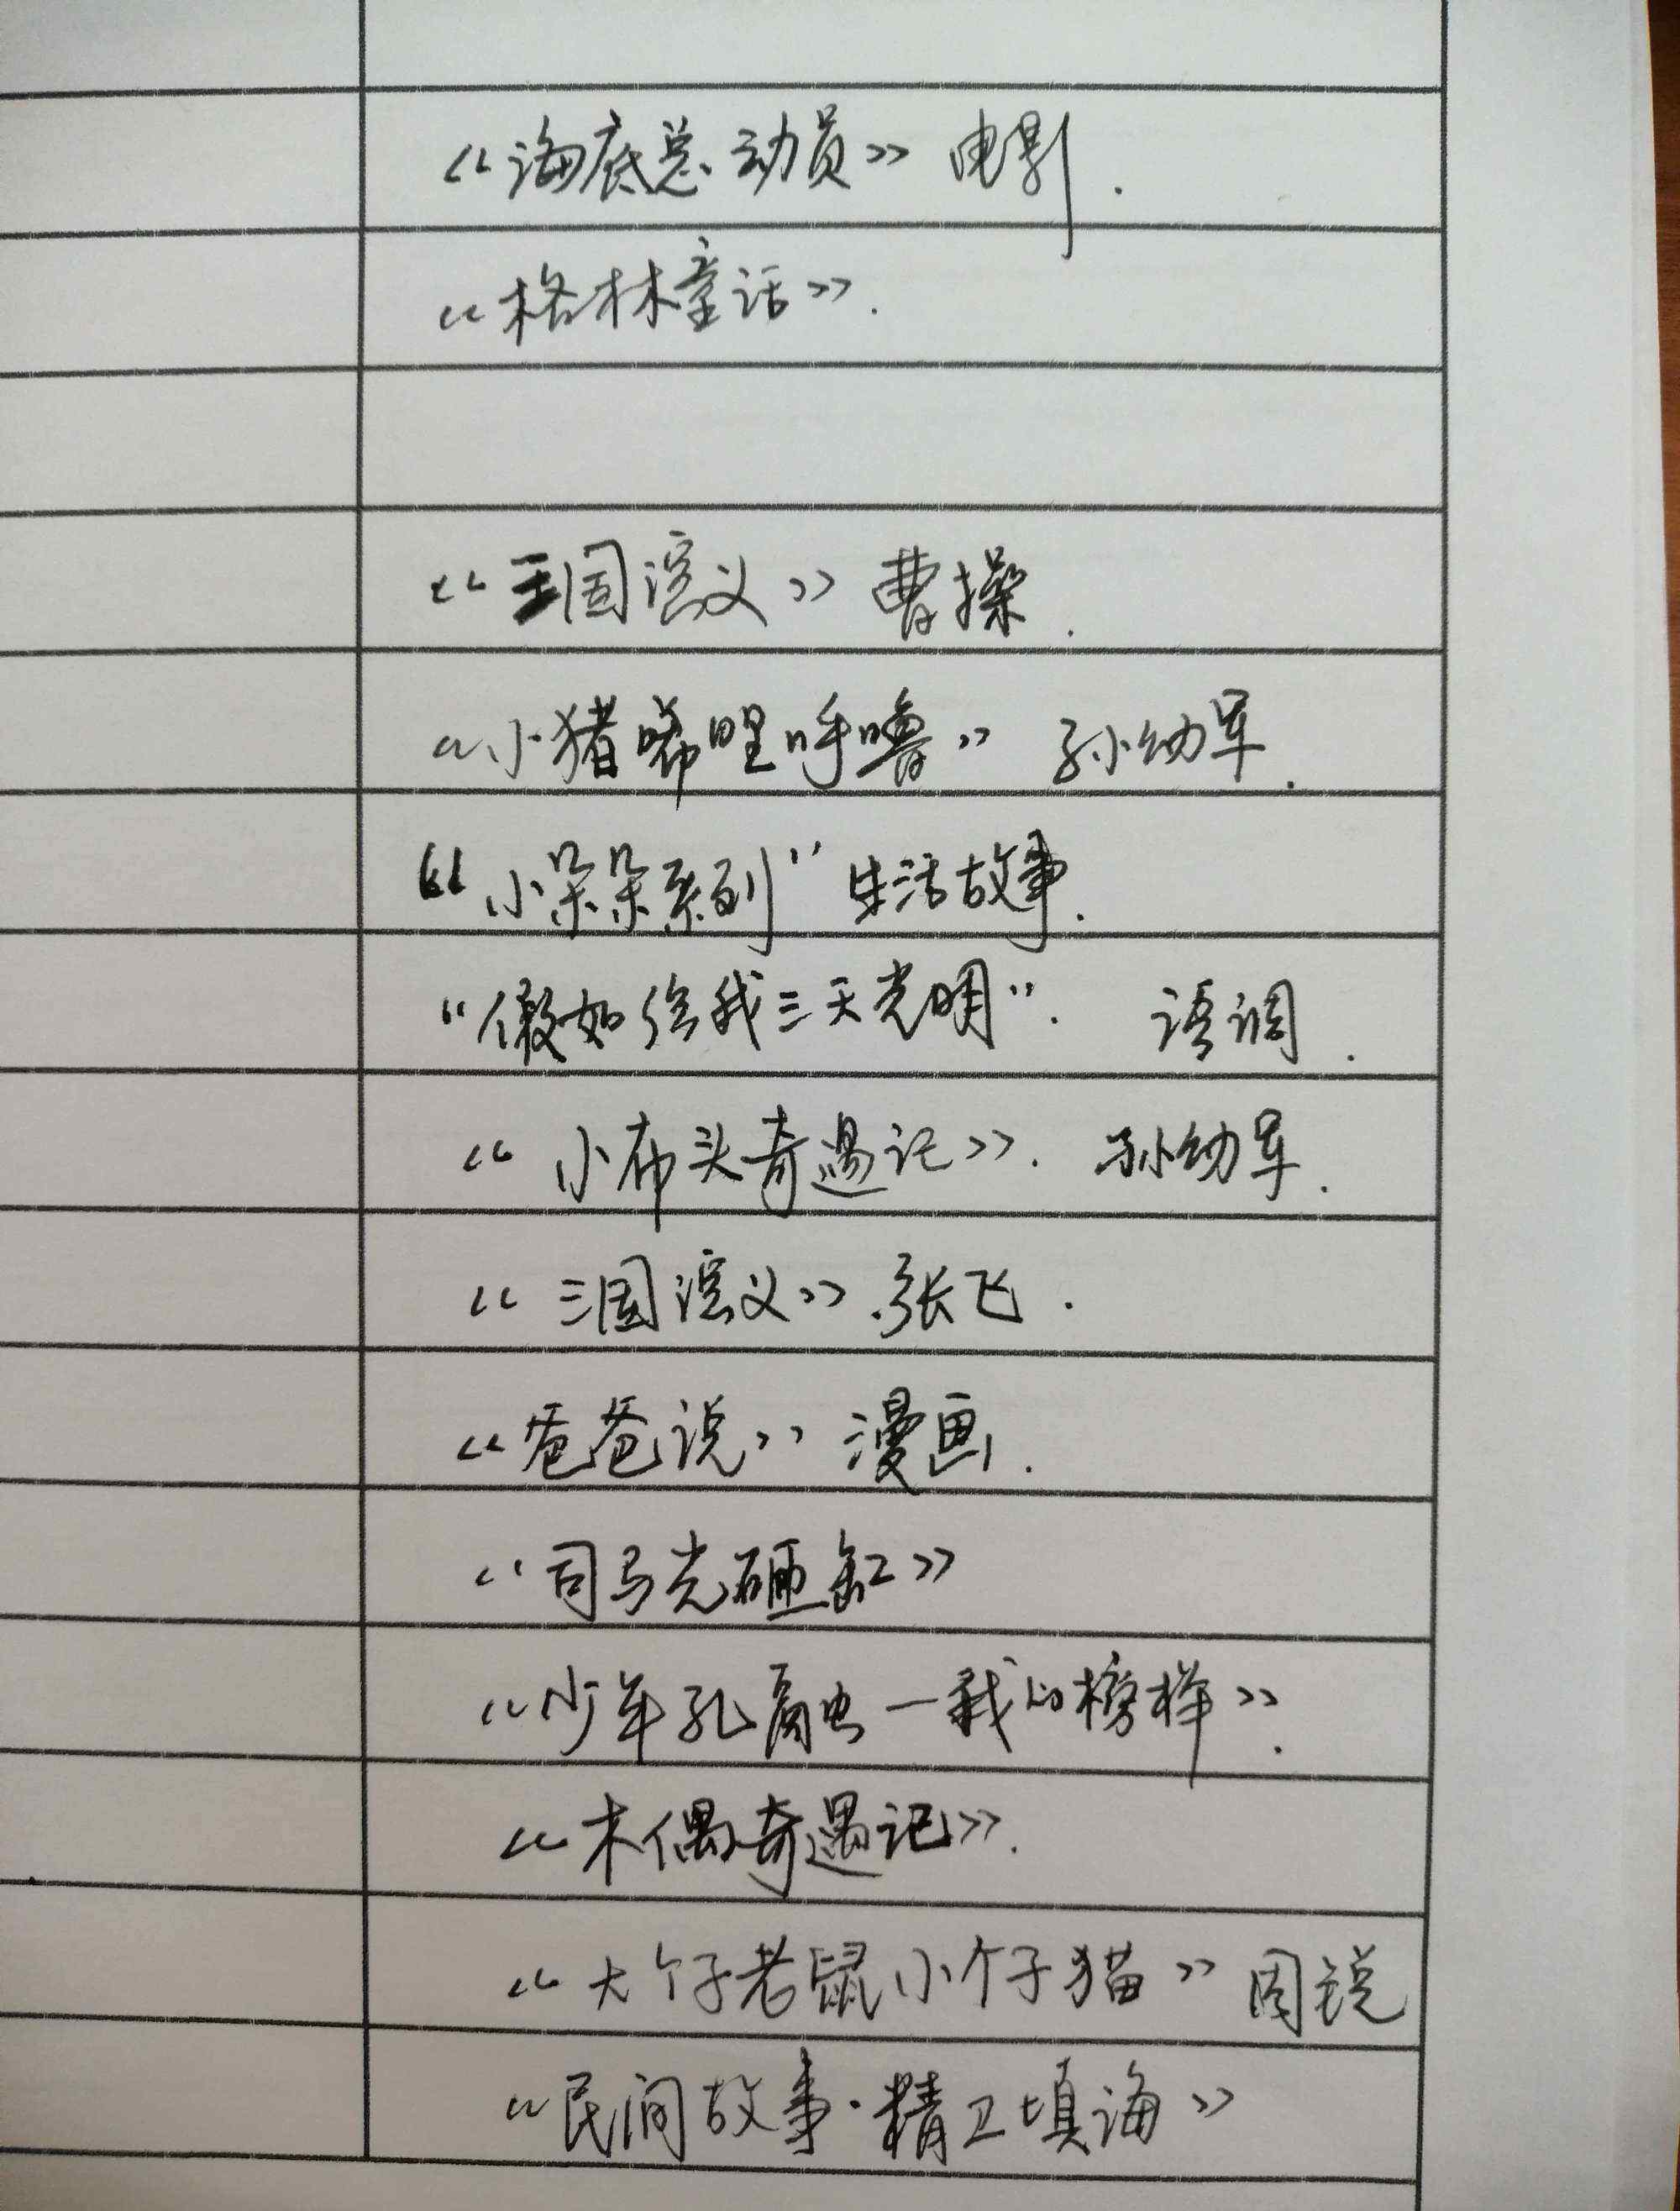 《海底总动员》电影.
《格林童话》.
《三国演义》曹操.
《小猪唏哩呼噜》 孙幼军.
“小朵朵系列” 生活故事.
“假如给我三天光明”. 语调.
《小布头奇遇记》. 孙幼军.
《三国演义》.张飞.
《爸爸说》漫画.
《司马光砸缸》
《少年孔融—我的榜样》.
《木偶奇遇记》.
《大个子老鼠小个子猫》周锐
《民间故事·精卫填海》